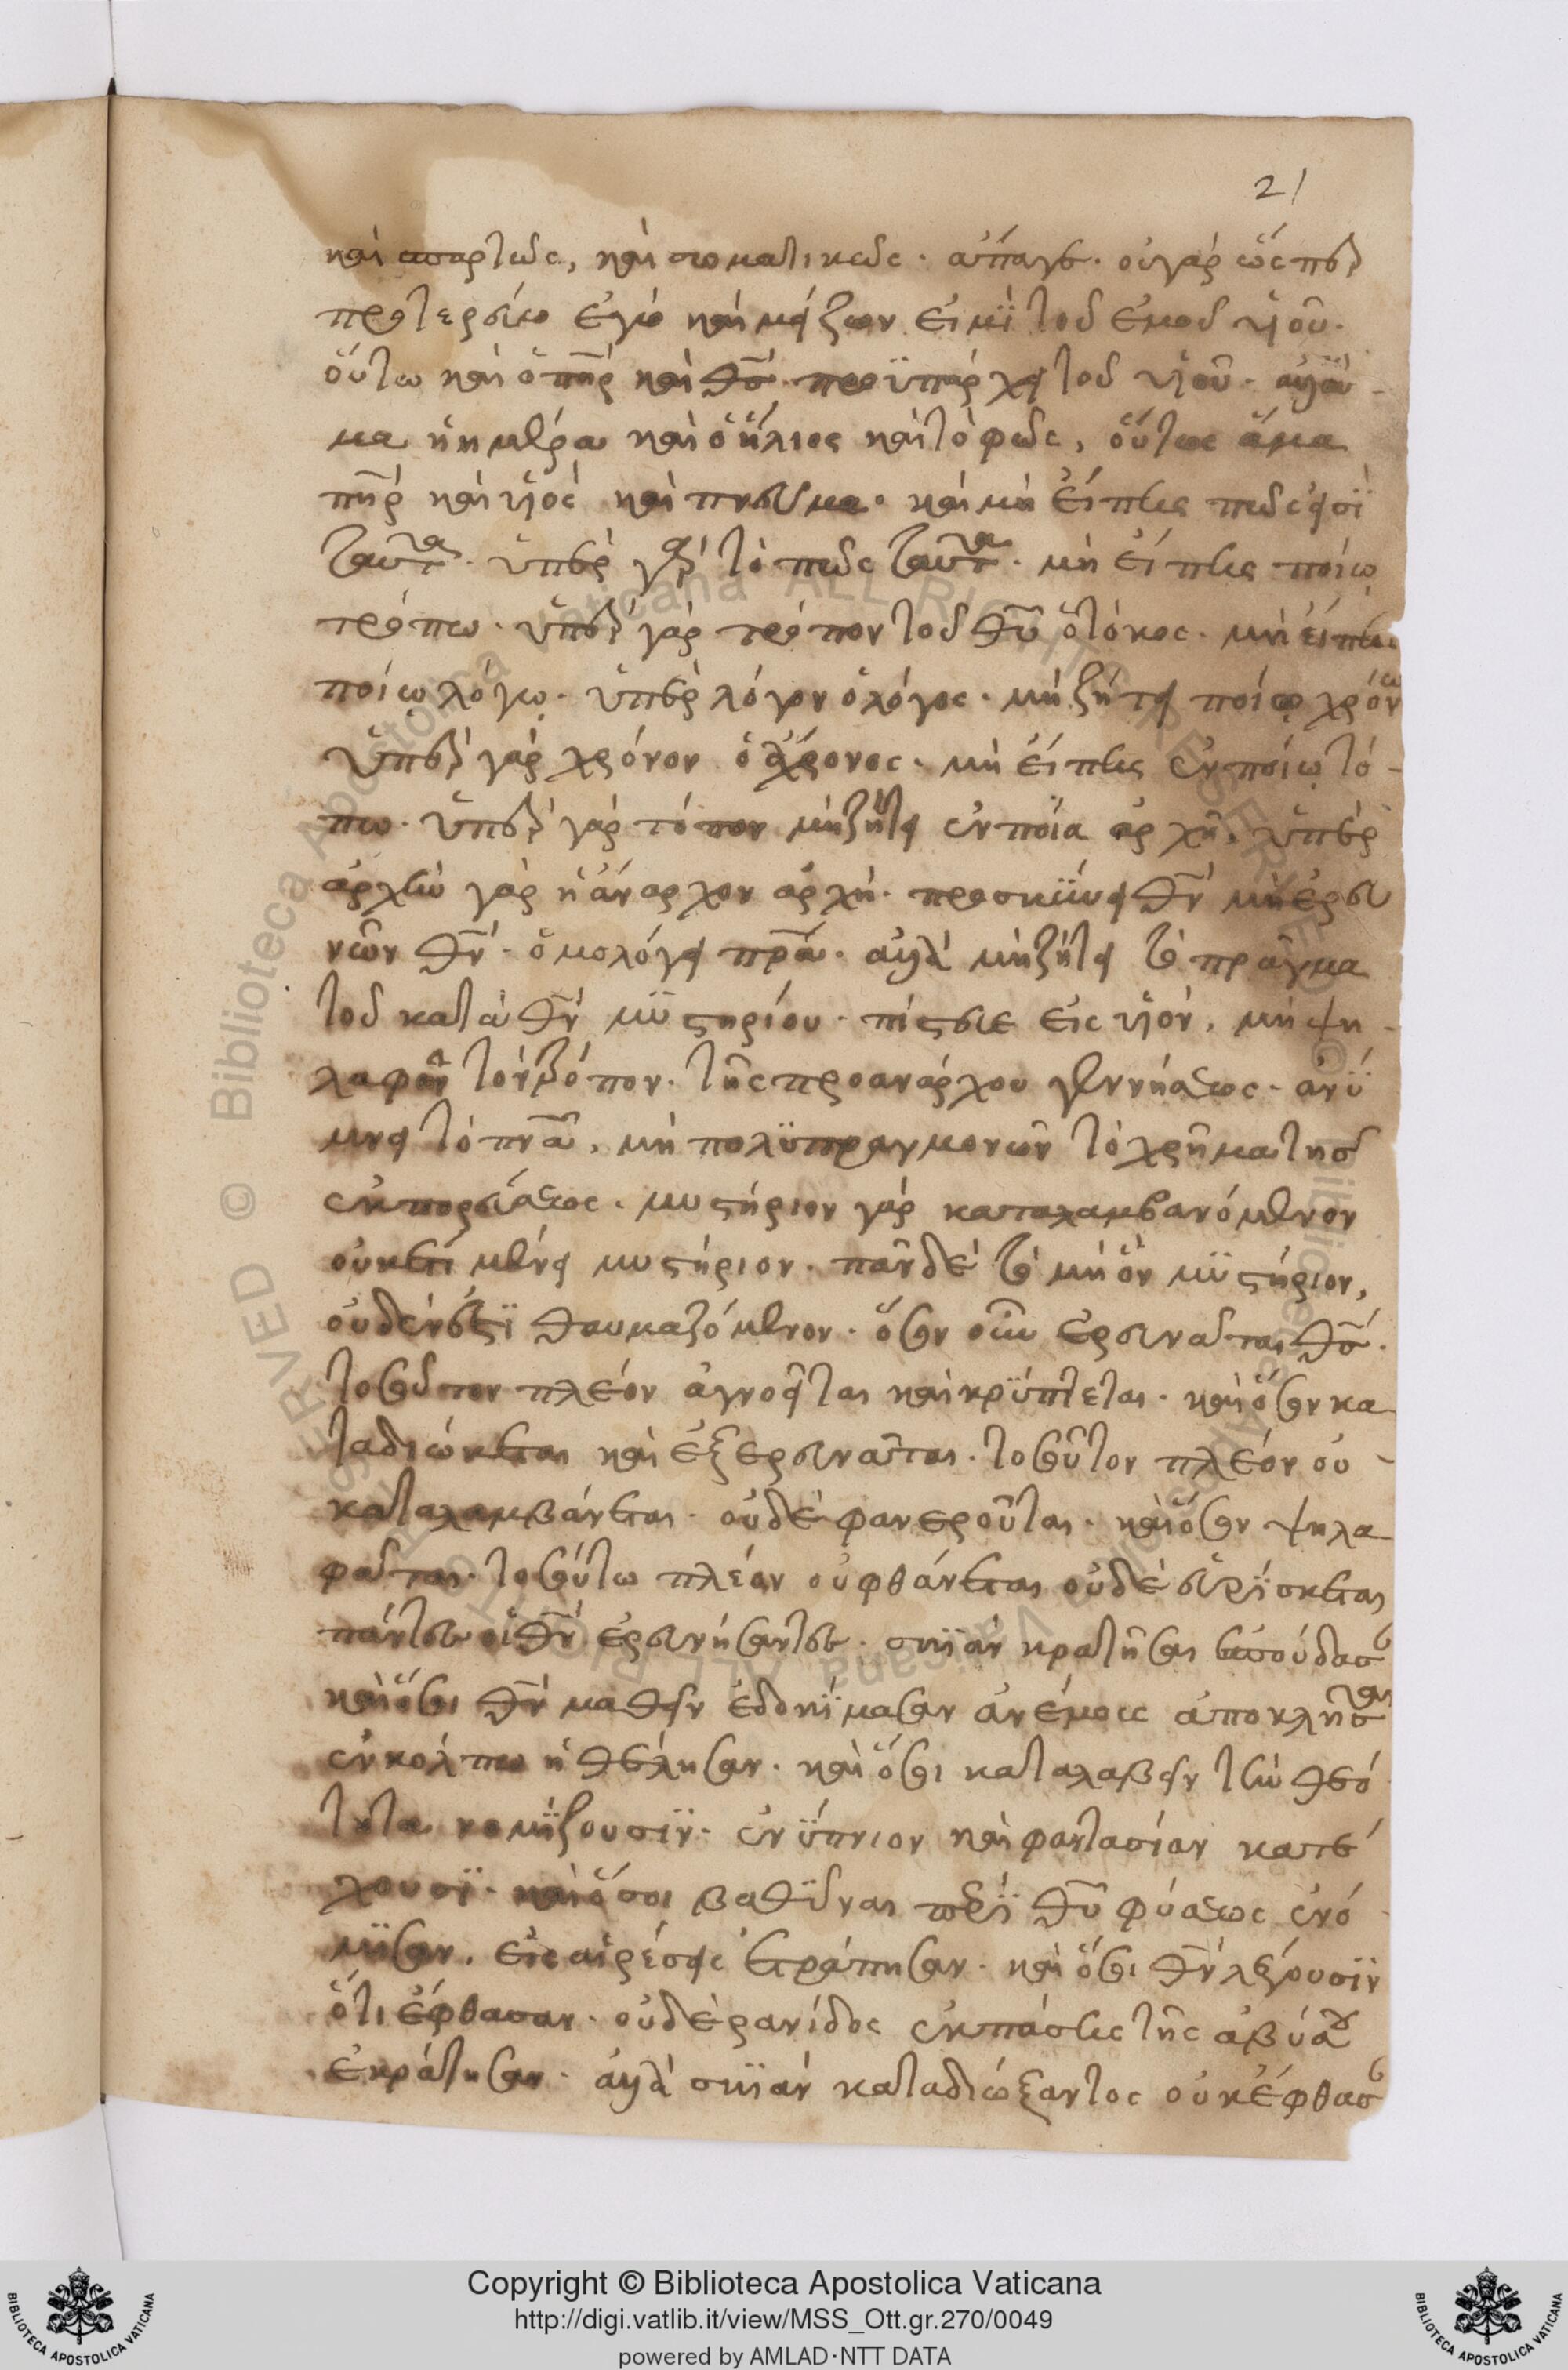 21
καὶ σαρκικῶς, καὶ σωματικῶς· ἄπαγε· οὐ γὰρ ὥσπερ
προτερεύω ἐγὼ καὶ μείζων εἰμὶ τοῦ ἐμοῦ υἱοῦ·
οὕτω καὶ ὁ πηρ καὶ θς προϋπάρχει τοῦ υἱοῦ· ἀλλ' ἅ-
μα ἡ ἡμέρα καὶ ὁ ἥλιος καὶ τὸ φῶς, οὕτως ἅμα
πηρ καὶ υἱὸς καὶ πνεῦμα· καὶ μὴ εἴπῃς πῶς ἐστὶ
ταῦτα· ὑπὲρ γὰρ τὸ πῶς ταῦτα· μὴ εἴπῃς ποίῳ
τρόπω· ὑπὲρ γὰρ τρόπον τοῦ θυ ὁ τόκος· μὴ εἴπῃς
ποίω λόγῳ· ὑπὲρ λόγον ὁ λόγος· μὴ ζήτει ποίῳ χρόνω
ὑπὲρ γὰρ χρόνον ὁ ἄχρονος· μὴ εἴπῃς ἐν ποίῳ τό-
πω· ὑπὲρ γὰρ τόπον μὴ ζήτει ἐν ποία ἀρχῆ· ὑπὲρ
ἀρχὴν γὰρ ἡ ἄναρχον ἀρχή· προσκύνει θν μὴ ἐρευ
νῶν θν· ὁμολόγει πρα· ἀλλὰ μὴ ζήτει τὸ πρᾶγμα
τοῦ κατὰ θν μϋστηρίου· πίστευε εἰς υἱὸν, μὴ ψη-
λαφῶν τὸν τρόπον· τῆς προανάρχου γεννήσεως· ἀνύ
μνει τὸ πνα, μὴ πολϋπραγμονῶν τὸ χρῆμα τῆς
ἐκπορεύσεως· μυστήριον γὰρ καταλαμβανόμενον
οὐκέτι μένει μυστήριον· πᾶν δὲ τὸ μὴ ὂν μϋστήριον,
οὐδέν ἐστϊ θαυμαζόμενον· ὅσον οὖν ἐρευνᾶται θς·
τοσοῦτον πλέον ἀγνοεῖται καὶ κρύπτεται· καὶ ὅσον κα
ταδιώκεται καὶ ἐξερευνᾶται· τοσοῦτον πλέον οὐ-
καταλαμβάνεται· οὐδὲ φανεροῦται· καὶ ὅσον ψηλα
φᾶται· τοσούτω πλέον οὐ φθάνεται οὐδὲ εὑρίσκεται
πάντες οἱ θν ἐρευνήσαντες· σκιὰν κρατῆσαι ἐσπούδασ
καὶ ὅσοι θν μαθεῖν ἐδοκίμασαν ἀνέμοις ἀποκλεῖσαι
ἐν κόλπω ἠθέλησαν· καὶ ὅσοι καταλαβεῖν τὴν θεό
τητα νομίζουσιν· ἐνύπνιον καὶ φαντασίαν κατέ
χουσϊ· καὶ ὅσοι βαθῦναι περὶ θυ φύσεως ἐνό
μισαν, εἰς αἱρέσεις ἐτράπησαν· καὶ ὅσοι θν λέγουσιν
ὅτι ἔφθασαν· οὐδὲ ρανίδος ἐκ πάσης τῆς ἀβύσσου
ἐκράτησαν· ἀλλὰ σκιὰν καταδιώξαντος οὐκ ἔφθασ
Copyright © Biblioteca Apostolica Vaticana
http://digi.vatlib.it/view/MSS_Ott.gr.270/0049
powered by AMLAD·NTT DATA